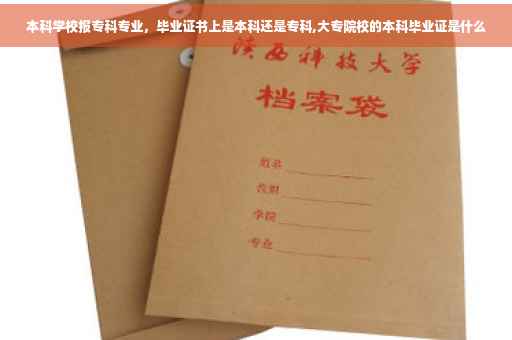 本科学校报专科专业，毕业证书上是本科还是专科,大专院校的本科毕业证是什么
陕西科技大学
档案袋
姓名
性别
学院
专业